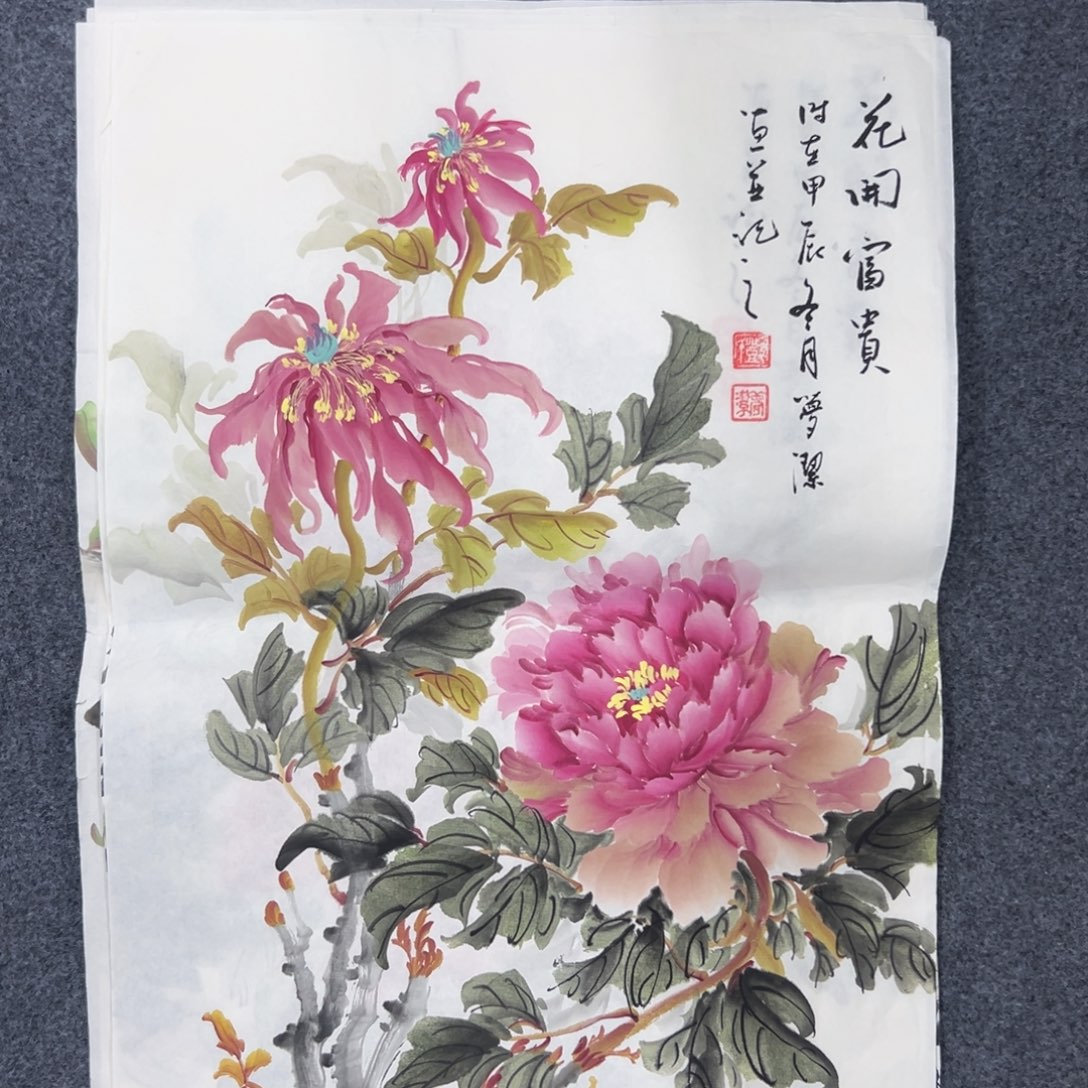 花開富貴
時在甲辰冬月夢潔
並記之